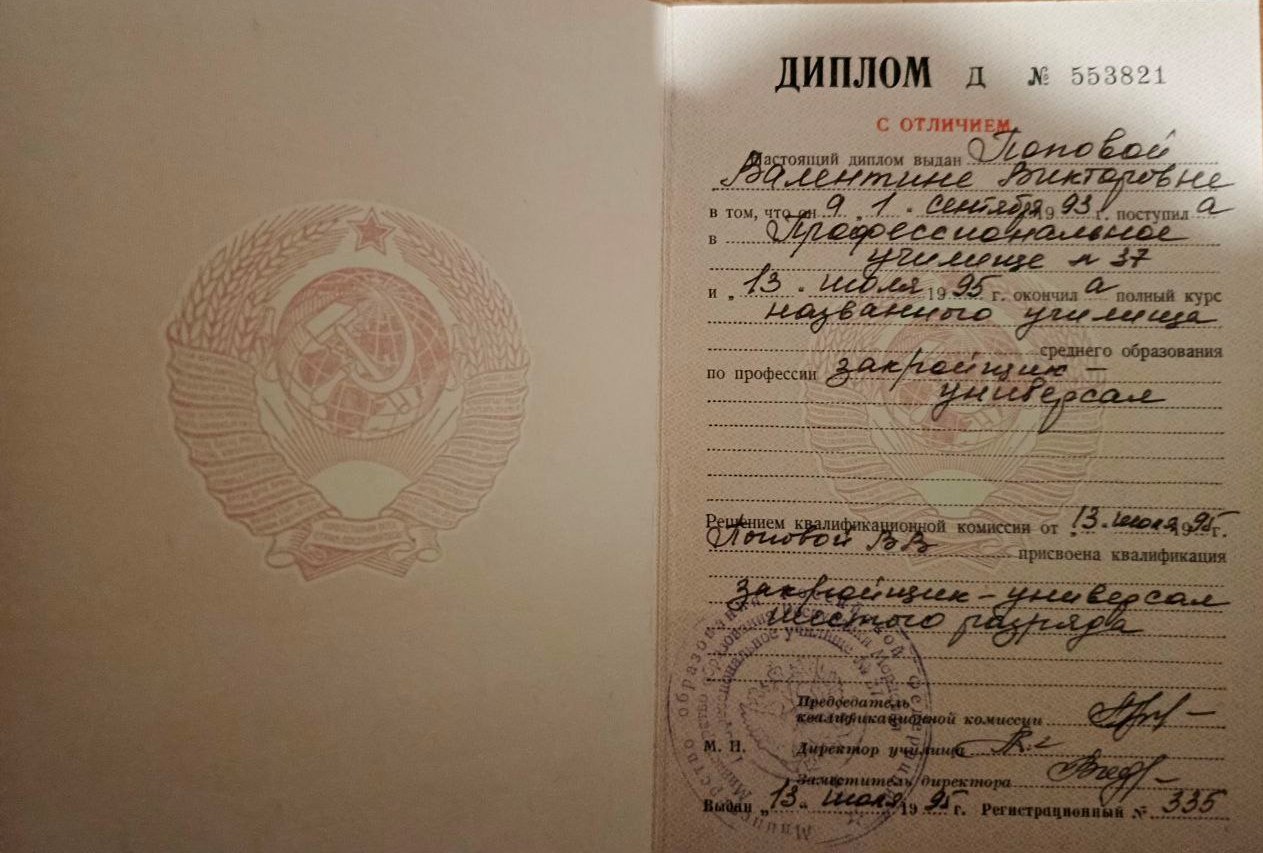 ДИПЛОМ Д № 553821
С ОТЛИЧИЕМ
Настоящий диплом выдан Поповой
Валентине Викторовне
в том, что он а „ 1 " сентября 19 93 г. поступил а
в Профессиональное
училище № 37
и „ 13 " июля 19 95 г. окончил а полный курс
названного училища
среднего образования
по профессии закройщик –
универсал
Решением квалификационной комиссии от „ 13 " июля 19 95 г.
Поповой В В присвоена квалификация
закройщик – универсал
шестого разряда
Председатель
квалификационной комиссии
М. П. Директор училища
Заместитель директора
Выдан „ 13 " июля 19 95 г. Регистрационный № 335
Профессиональное училище № 37